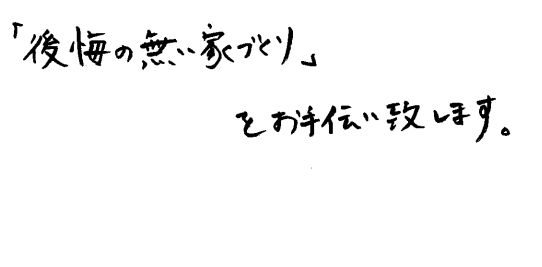 「後悔の無い家づくり」
をお手伝い致します。